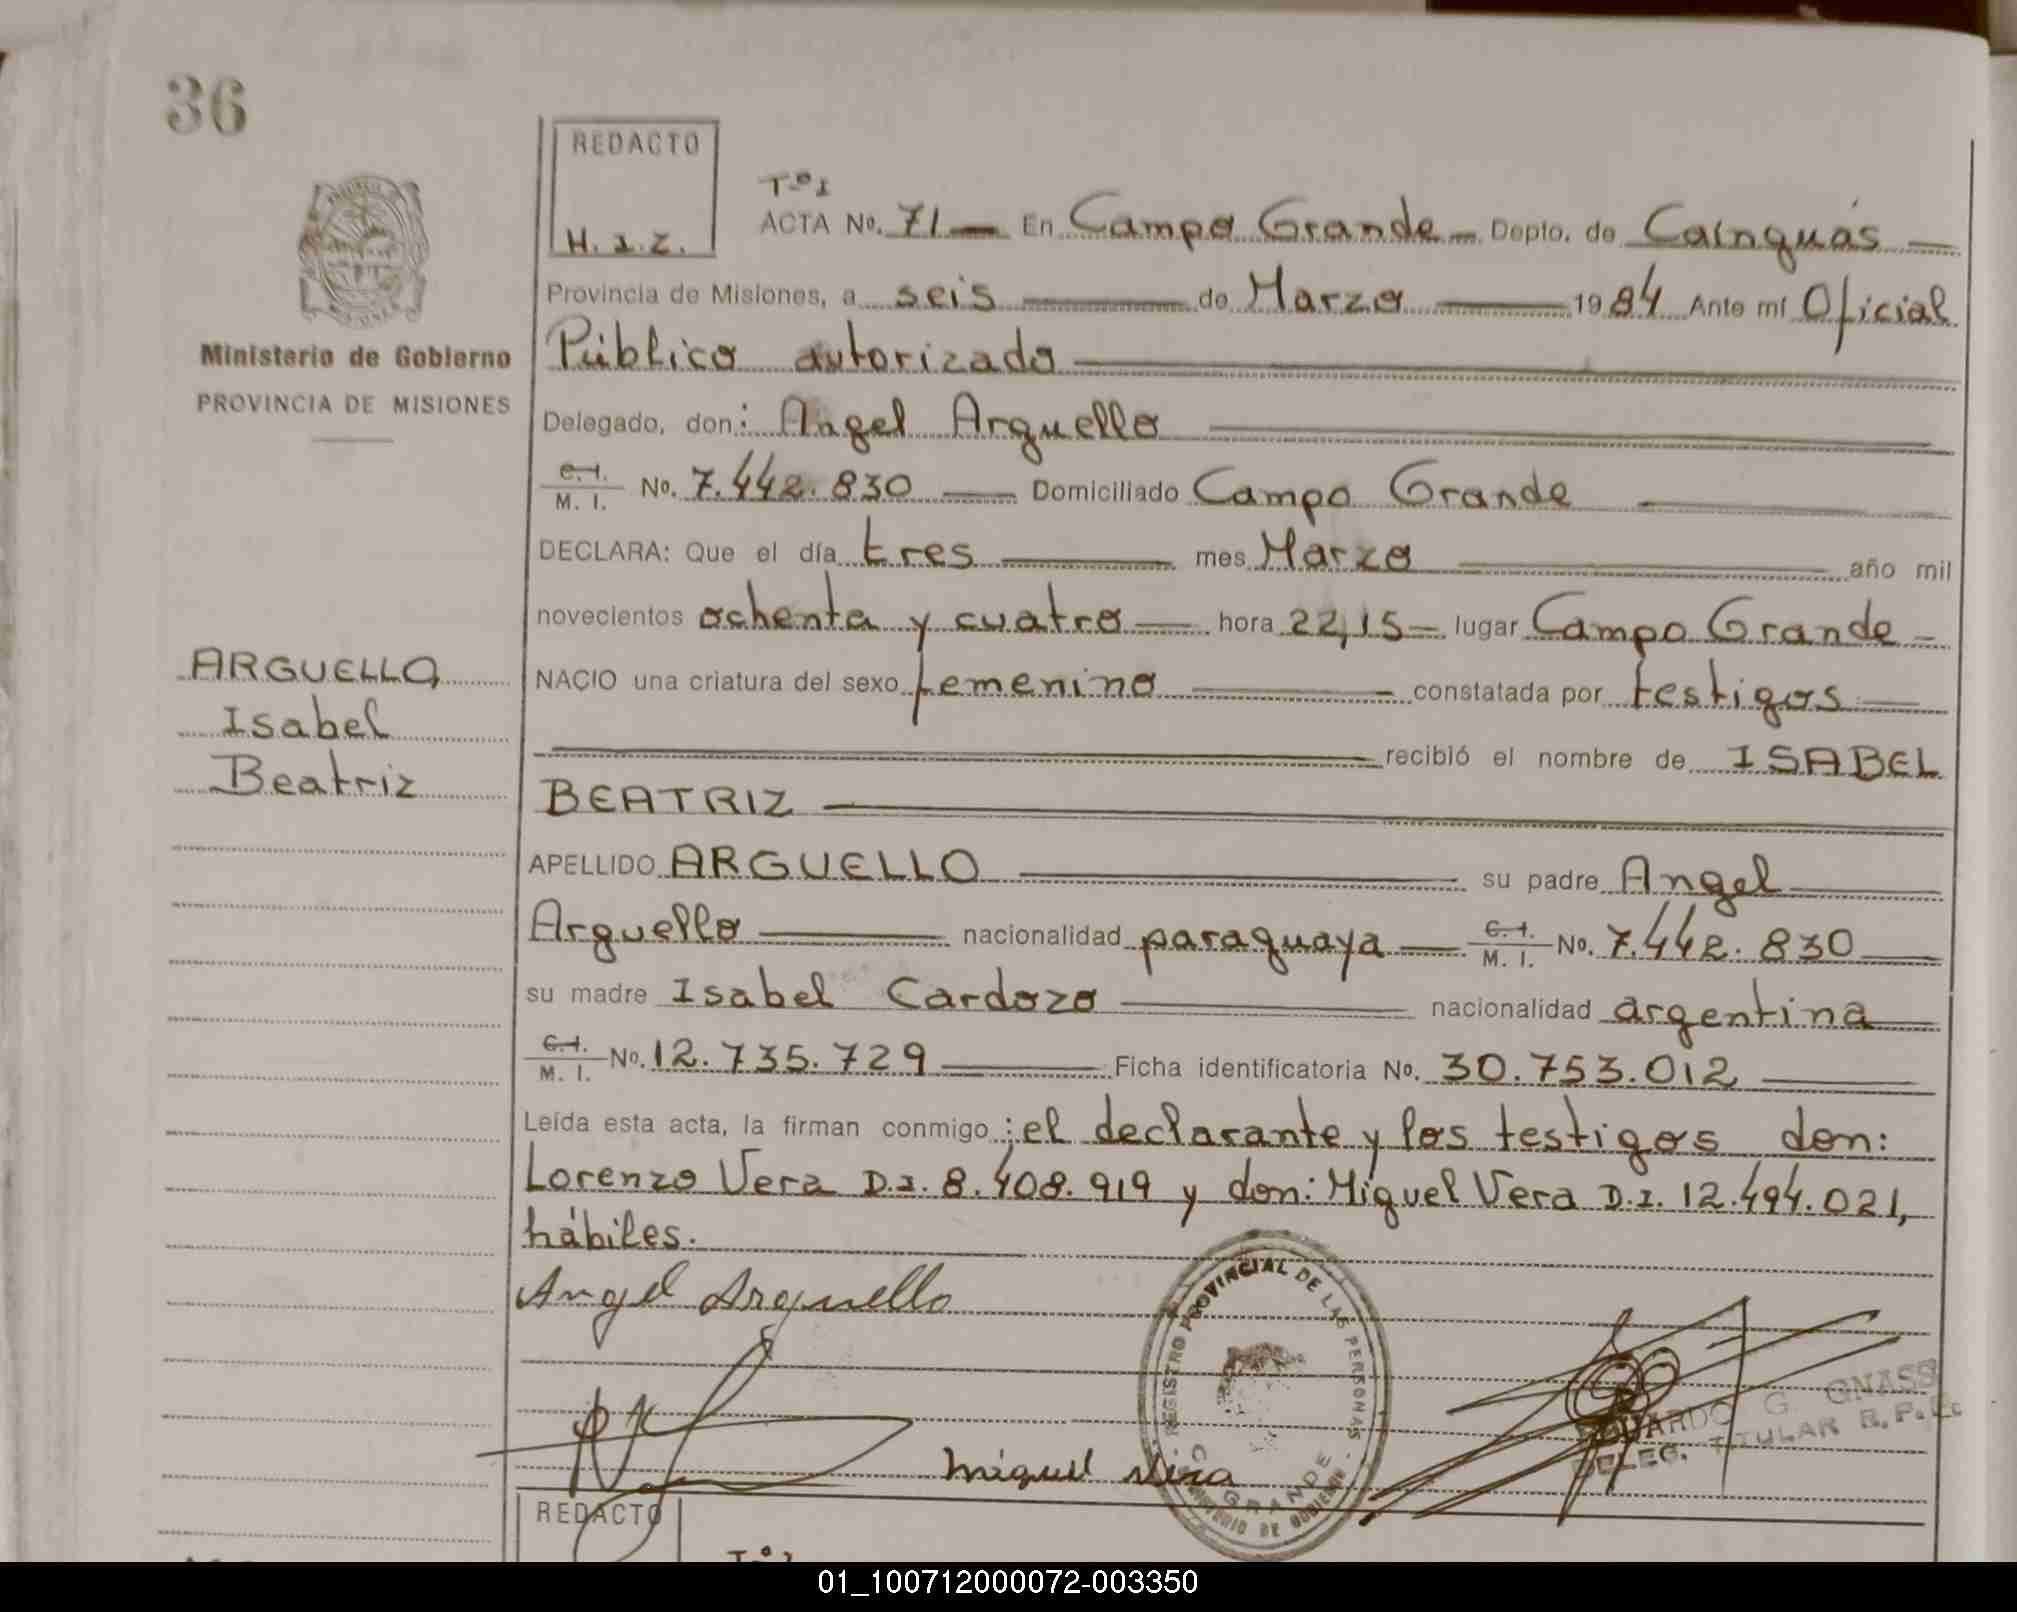 36
REDACTO
H.I.Z.
Tº1
ACTA No. 71 En Campo Grande Depto. de Cainguás
Provincia de Misiones, a seis de Marzo 1984 Ante mí Oficial
Público autorizado
Ministerio de Gobierno
PROVINCIA DE MISIONES
Delegado, don: Angel Arguello
C.I. M. I. No. 7.442.830 Domiciliado Campo Grande
DECLARA: Que el día tres mes Marzo año mil
novecientos ochenta y cuatro hora 22,15 lugar Campo Grande
ARGUELLO
Isabel
Beatriz
NACIO una criatura del sexo femenino constatada por testigos
recibió el nombre de ISABEL
BEATRIZ
APELLIDO ARGUELLO su padre Angel
Arguello nacionalidad paraguaya C.I. M. I. No. 7.442.830
su madre Isabel Cardozo nacionalidad argentina
C.I. M. I. No. 12.735.729 Ficha identificatoria No. 30.753.012
Leída esta acta, la firman conmigo : el declarante y los testigos don:
Lorenzo Vera D.I. 8.408.919 y don: Miguel Vera D.I. 12.494.021,
hábiles.
Angel Arguello
REGISTRO PROVINCIAL DE LAS PERSONAS
GRANDE
MINISTERIO DE GOBIERNO
Miguel Vera
EDUARDO G. GNASS
DELEG. TITULAR R.P.P.
REDACTO
Tº1
01_100712000072-003350